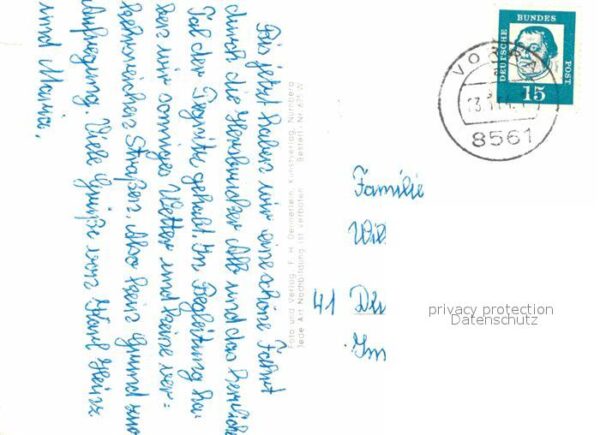 Bis jetzt haben wir eine schöne Fahrt
durch die Hersbrucker Alb und das herrliche
Tal der Pegnitz gehabt. In Begleitung ha-
ben wir sonniges Wetter und keine ver=
kehrsreichen Straßen, also kein Grund zur
Aufregung. Viele Grüße von Karl Heinz
und Maria.
Foto und Verlag: F. H. Dennerlein, Kunstverlag, Nürnberg
Jede Art Nachbildung ist verboten Bestell. Nr. 631 W
DEUTSCHE BUNDES POST
15
VO
13
8561
Familie
Wil
41 Du
Im
privacy protection
Datenschutz